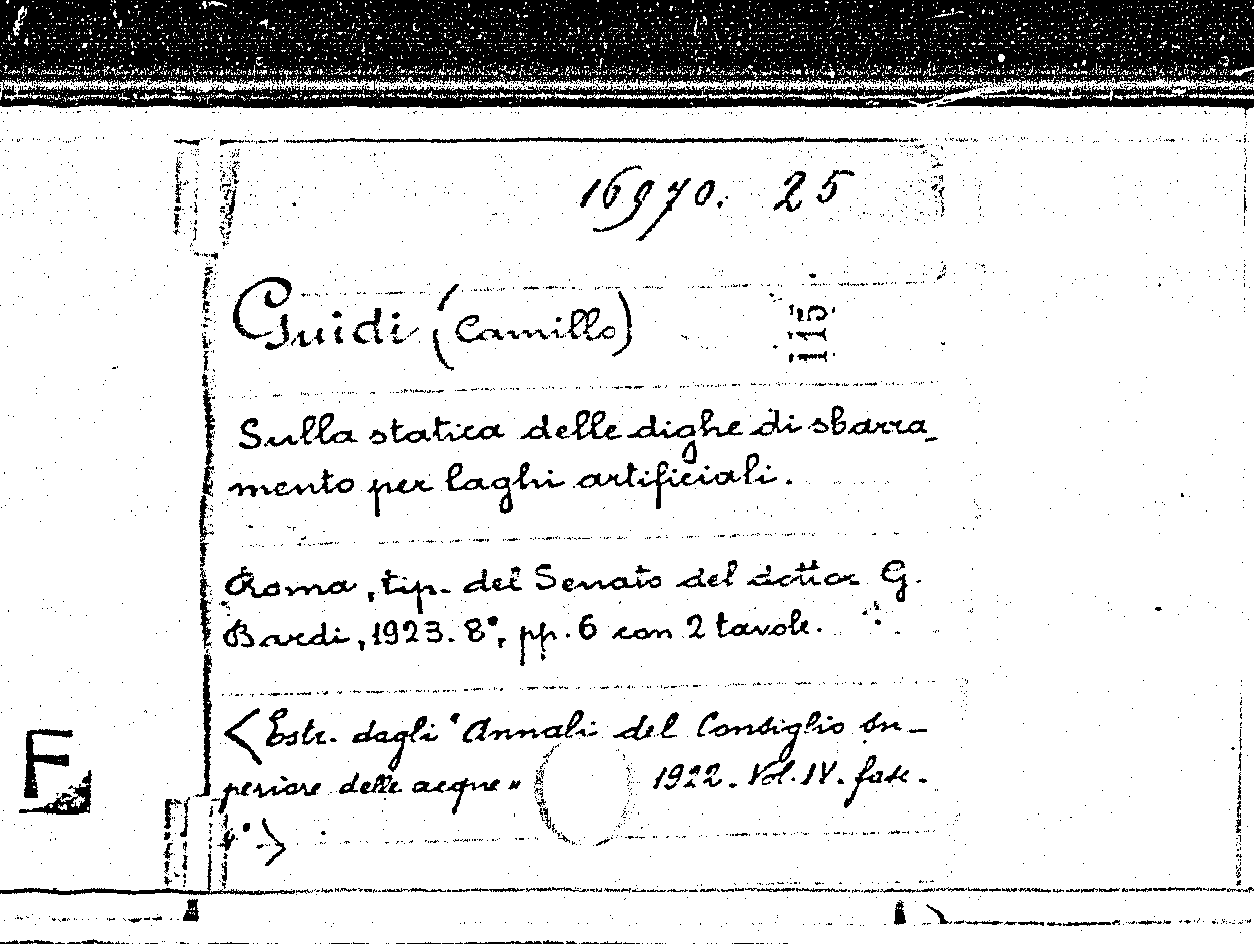 16970. 25
Guidi (Camillo)
115
Sulla statica delle dighe di sbarra_
mento per laghi artificiali.
Roma, tip. del Senato del dottor G.
Bardi, 1923. 8°, pp. 6 con 2 tavole.
<Estr. dagli "Annali del Consiglio Su_
periore delle acque" 1922. Vol. IV. fasc.
>
F